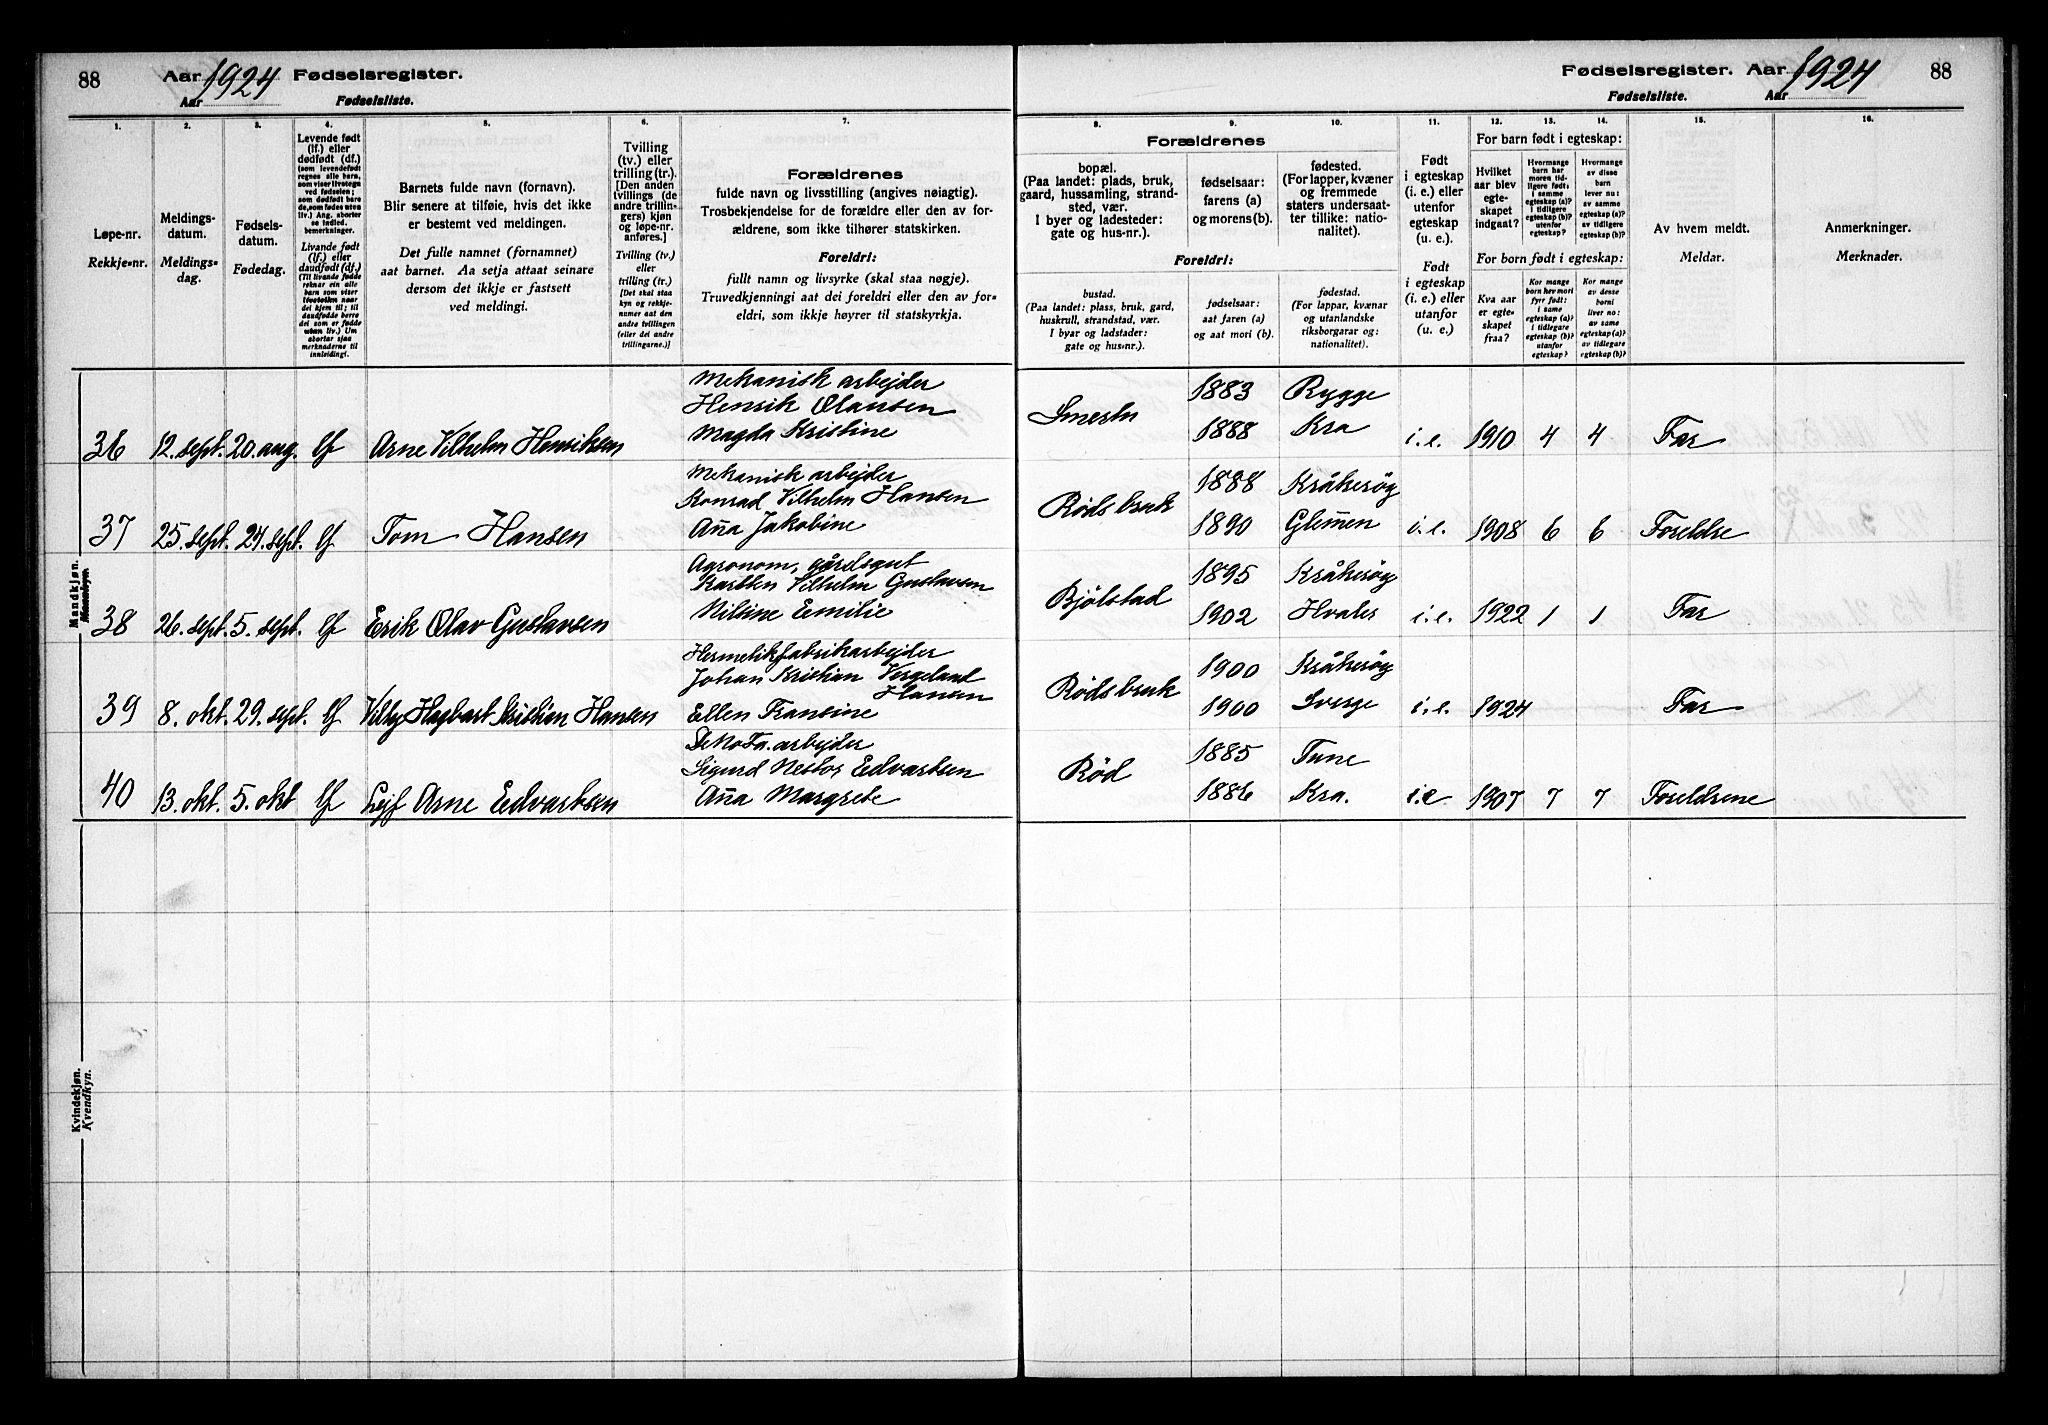 88 Aar 1924 Fødselsregister.
Aar Fødselsliste.
Fødselsregister. Aar 1924 88
Fødselsliste. Aar
1. 2. 3. 4. 5. 6. 7.
Løpe-nr.
Rekkje-nr.
Meldings-
datum.
Meldings-
dag.
Fødsels-
datum.
Fødedag.
Levende født
(lf.) eller
dødfødt (df.)
(som levendefødt
regnes alle barn,
som viser livstegn
ved fødselen;
som dødfødt bare
de, som fødes uten
liv.) Ang. aborter
se indled.
bemerkninger.
Livande født
(lf.) eller
daudfødt (df.)
(Til livande fødde
reknar ein alle
barn som viser
livsteikn naar
dei kjem til; til
daudfødde berre
dei som er fødde
utan liv.) Um
abortar sjaa
merknaderne til
innleiding).
Barnets fulde navn (fornavn).
Blir senere at tilføie, hvis det ikke
er bestemt ved meldingen.
Det fulle namnet (fornamnet)
aat barnet. Aa setja attaat seinare
dersom det ikkje er fastsett
ved meldingi.
Tvilling
(tv.) eller
trilling (tr.).
[Den anden
tvillings (de
andre trillin-
gers) kjøn
og løpe-nr.
anføres.]
Tvilling (tv.)
eller
trilling (tr.)
[Det skal staa
kyn og rekkje-
numer aat den
andre tvillingen
(eller dei andre
trillingarne.)]
Forældrenes
fulde navn og livsstilling (angives nøiagtig).
Trosbekjendelse for de forældre eller den av for-
ældrene, som ikke tilhører statskirken.
Foreldri:
fullt namn og livsyrke (skal staa nøgje).
Truvedkjenningi aat dei foreldri eller den av for-
eldri, som ikkje høyrer til statskyrkja.
8. 9. 10. 11. 12. 13. 14. 15. 16.
Forældrenes
bopæl.
(Paa landet: plads, bruk,
gaard, hussamling, strand-
sted, vær.
I byer og ladesteder:
gate og hus-nr.).
fødselsaar:
farens (a)
og morens (b).
fødested.
(For lapper, kvæner
og fremmede
staters undersaat-
ter tillike: natio-
nalitet).
Foreldri:
bustad.
(Paa landet: plass, bruk, gard,
huskrull, strandstad, vær.
I byar og ladstader:
gate og hus-nr.).
fødselsaar:
aat faren (a)
og aat mori (b).
fødestad.
(For lappar, kvænar
og utanlandske
riksborgarar og:
nationalitet).
Født
i egteskap
(i. e.) eller
utenfor
egteskap
(u. e.).
Født
i egteskap
(i. e.) eller
utanfor
(u. e.)
For barn født i egteskap:
Hvilket
aar blev
egte-
skapet
indgaat?
Hvormange
barn har
moren tid-
ligere født:
i samme
egteskap (a)?
i tidligere
egteskap (b)?
utenfor
egteskap?
Hvormange
av disse
barn
lever nu:
av samme
egteskap (a)?
av tidligere
egteskap (b)?
For born født i egteskap:
Kva aar
er egte-
skapet
fraa?
Kor mange
born hev mori
fyrr født:
i same
egteskap (a)?
i tidlegare
egteskap (b)?
utanfor
egteskap?
Kor mange
av desse
borni
liver no:
av same
egteskap (a)?
av tidlegare
egteskap (b)?
Av hvem meldt.
Meldar.
Anmerkninger.
Merknader.
Mandkjøn.
Mannkyn.
Mekanisk arbejder
Henrik Olausen
Magda Kristine
36 12. sept. 20. aug. lf Arne Vilhelm Henriksen
1883 Rygge
1888 Kra i. e. 1910 4 4 Far
Mekanisk arbejder
Konrad Vilhelm Hansen
37 25. sept. 24. sept. lf Tom Hansen Anna Jakobine
Røds bruk 1888 Kråkerøy
1890 Glemmen i. e. 1908 6 6 Foreldre
Agronom, gårdsgut
Karsten Vilhelm Gustavsen
Nilsine Emilie
38 26. sept. 5. sept. lf Erik Olav Gustavsen
Bjølstad 1895 Kråkerøy
1902 Hvaler i. e. 1922 1 1 Far
Hermetikfabrikarbejder
Johan Kristian Vergeland
Hansen
39 8. okt. 29. sept. lf Villy Hagbart Kristian Hansen Ellen Fransine
Røds bruk 1900 Kråkerøy
1900 Sverge i. e. 1924 Far
DeNoFa. arbejder
Sigurd Nestor Edvartsen
40 13. okt. 5. okt lf Lejf Arne Edvartsen Anna Margrete
Rød 1885 Tune
1886 Kra. i. e 1907 7 7 Foreldrene
Kvindekjøn.
Kvendkyn.